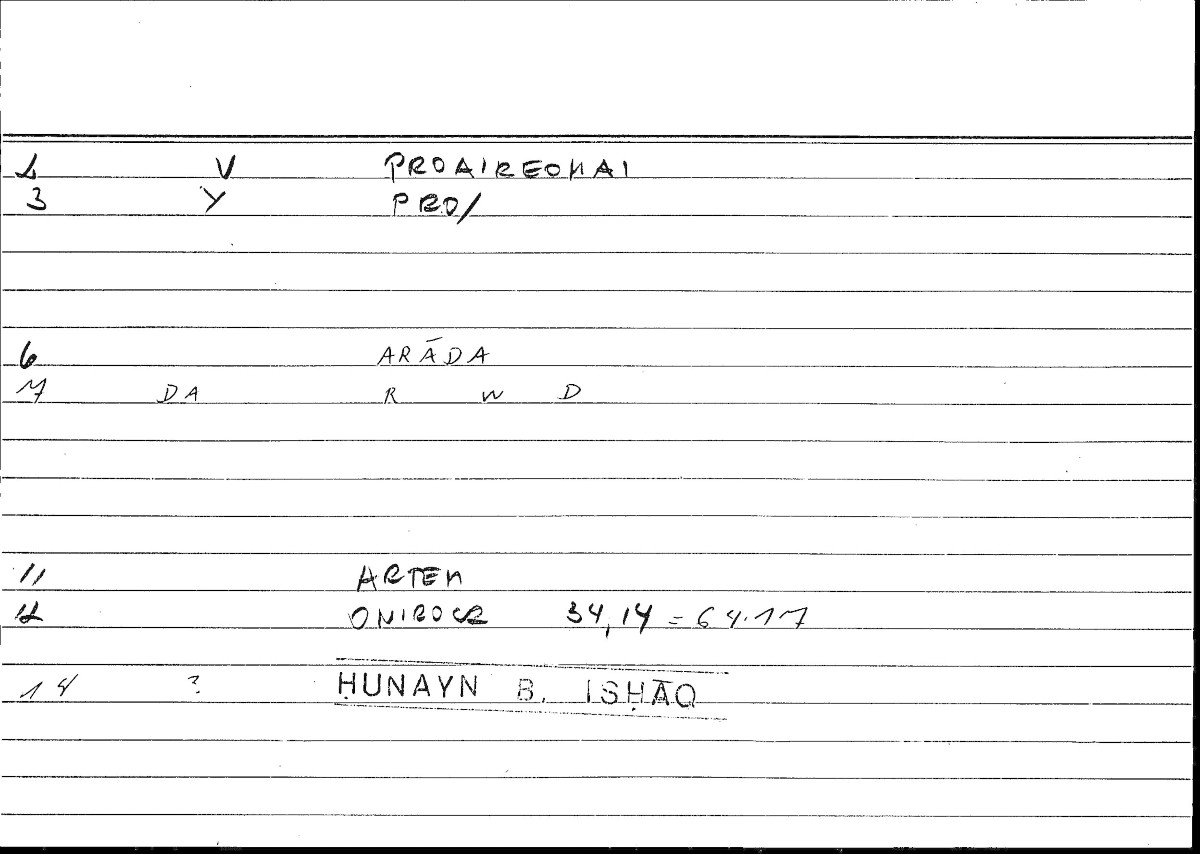 2 V PROAIREOMAI
3 Y PRO/
6 ARĀDA
7 DA R W D
11 ARTEM
12 ONIROCR 34,14 = 64.17
14 ? ḤUNAYN B. ISḤĀQ